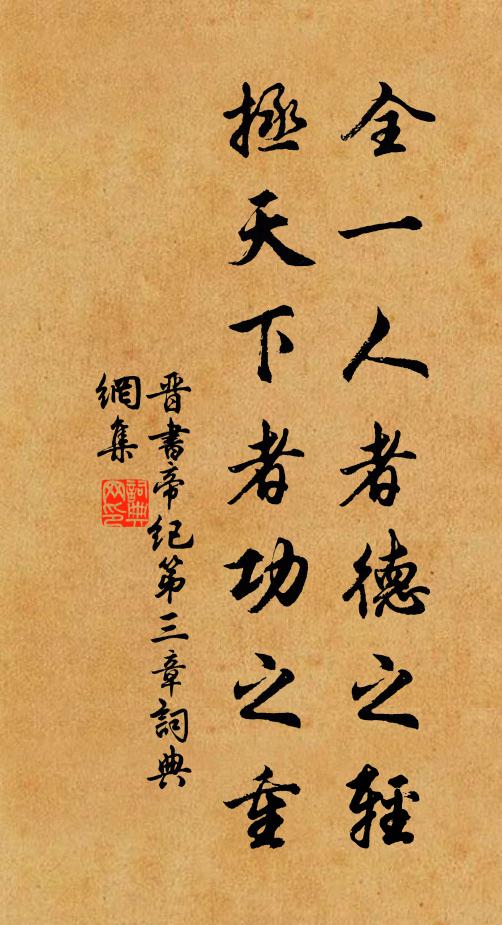 全一人者德之輕
拯天下者功之重
晋書帝紀第三章詞典
網集
詞典
网印